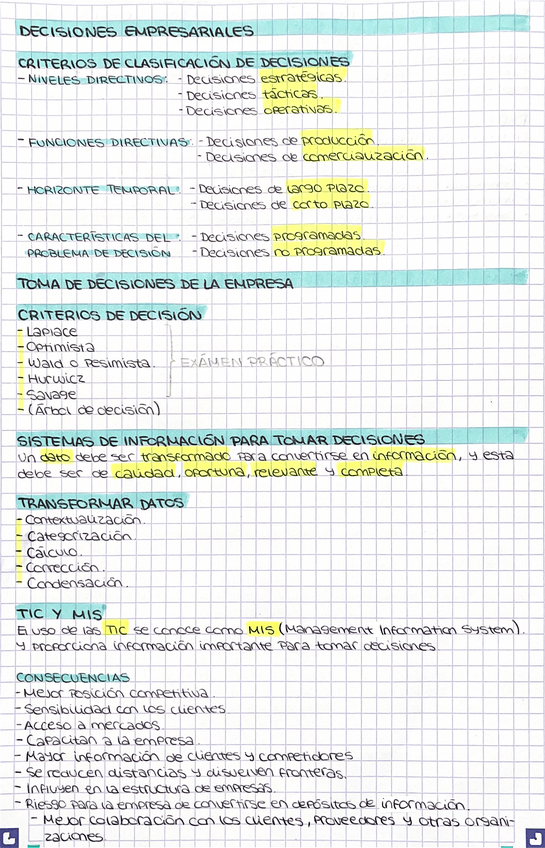 DECISIONES EMPRESARIALES
CRITERIOS DE CLASIFICACIÓN DE DECISIONES
- NIVELES DIRECTIVOS: - Decisiones estratégicas.
- Decisiones tácticas.
- Decisiones operativas.
- FUNCIONES DIRECTIVAS: - Decisiones de producción.
- Decisiones de comercialización.
- HORIZONTE TEMPORAL: - Decisiones de largo plazo.
- Decisiones de corto plazo.
- CARACTERÍSTICAS DEL : - Decisiones programadas.
PROBLEMA DE DECISIÓN - Decisiones no programadas.
TOMA DE DECISIONES DE LA EMPRESA
CRITERIOS DE DECISIÓN
- Laplace
- Optimista
- Wald o Pesimista. EXÁMEN PRÁCTICO
- Hurwicz
- Savage
- (Árbol de decisión)
SISTEMAS DE INFORMACIÓN PARA TOMAR DECISIONES
Un dato debe ser transformado para convertirse en información, y esta
debe ser de calidad, oportuna, relevante y completa.
TRANSFORMAR DATOS
- Contextualización.
- Categorización.
- Cálculo.
- Corrección.
- Condensación.
TIC Y MIS
El uso de las TIC se conoce como MIS (Management Information System).
Y proporciona información importante para tomar decisiones.
CONSECUENCIAS
- Mejor posición competitiva.
- Sensibilidad con los clientes
- Acceso a mercados.
- Capacitan a la empresa.
- Mayor información de clientes y competidores
- Se reducen distancias y disuelven fronteras.
- Influyen en la estructura de empresas.
- Riesgo para la empresa de convertirse en depósitos de información.
- Mejor colaboración con los clientes, proveedores y otras organi-
zaciones.